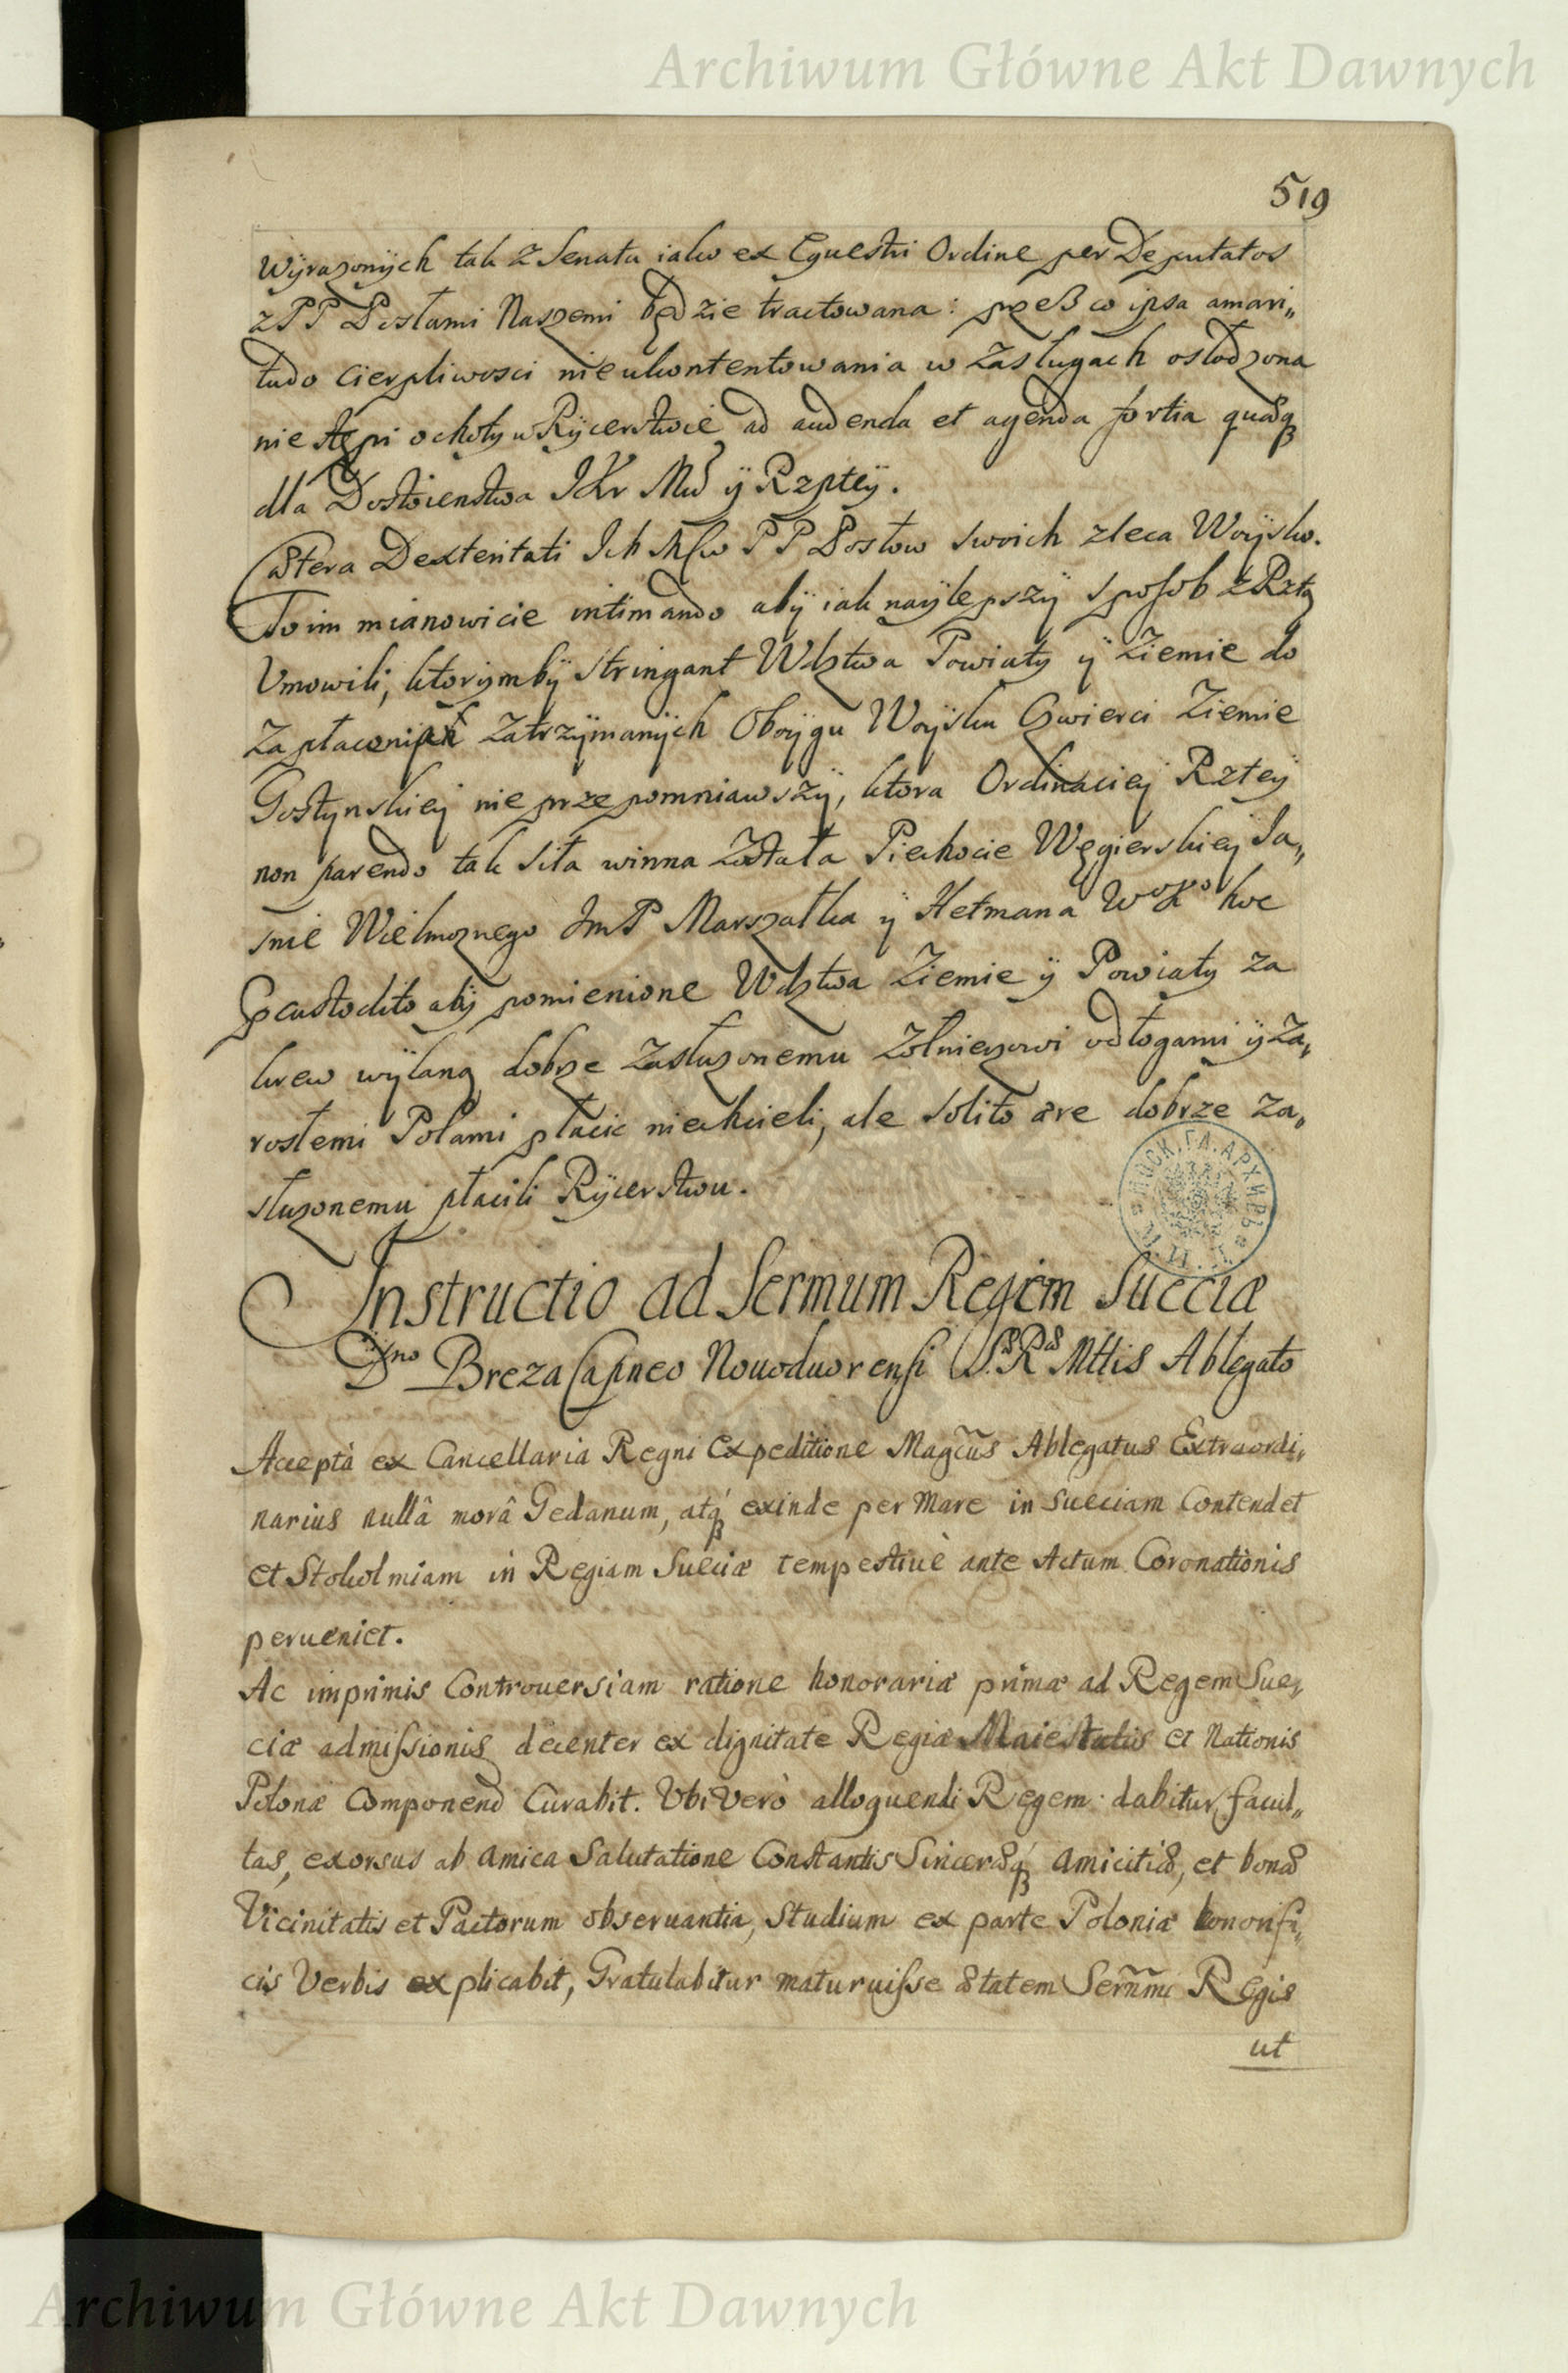 Archiwum Główne Akt Dawnych
519
Wyrazonÿch tak z Senatu iako ex Equestri Ordine per Deputatos
z PP Posłami Naszemi będzie tractowana: przeß co ipsa amari„
tudo cierpliwosci nieukontentowania w zasługach osłodzona
nie stępi ochoty w Rÿcerstwie ad audenda et agenda fortia quæq
dla Dostoienstwa JKr Mci ÿ Rzpteÿ.
Cætera Dexteritati Ich Mciw PP Posłow swoich zleca Woÿsko.
To im mianowicie intimando abÿ iak naÿlepszÿ sposob z Rztą
Vmowili, ktorÿmbÿ stringant Wdztwa Powiaty ÿ Ziemie do
zatrzÿmanÿch Oboÿgu Woÿsku Cwierci Ziemie
Gostynskieÿ nie przepomniawszÿ, ktora Ordinacieÿ Rzteÿ
non parendo tak siła winna została Piechocie Węgierskieÿ Ja„
snie Wielmoznego JmP Marszałka ÿ Hetmana WoKo hoc
custodito abÿ pomienione Wdztwa Ziemie ÿ Powiaty za
krew wÿlaną dobrze zasłuzonemu Zołnierzowi odłogami ÿ za„
rosłemi Polami płacic niechcieli, ale solito ære dobrze za„
słuzonemu płacili Rÿcerstwu.
МОСК. ГЛ. АРХИВЪ
Instructio ad Sermum Regem Sueciæ
Dno Breza Capneo Nouoduorensi S. Ræ Mttis Ablegato
Acceptâ ex Cancellaria Regni Expeditione Magcus Ablegatus Extraordi„
narius nullâ morâ Gedanum, atq exinde per Mare in Sueciam Contendet
et Stokolmiam in Regiam Sueciæ tempestiuè ante Actum Coronationis
perueniet.
Ac imprimis Controuersiam ratione honorariæ primæ ad Regem Sue„
ciæ admissionis decenter ex dignitate Regiæ Maiestatis et Nationis
Polonæ Componend Curabit. Vbi Verò alloquendi Regem dabitur facul„
tas, exorsus ab amica Salutatione Constantis Sinceræq amicitiæ, et bonæ
Vicinitatis et Pactorum obseruantia, Studium ex parte Poloniæ honorifi„
cis Verbis explicabit, Gratulabitur maturuisse ætatem Sernmi Regis
ut
Archiwum Główne Akt Dawnych